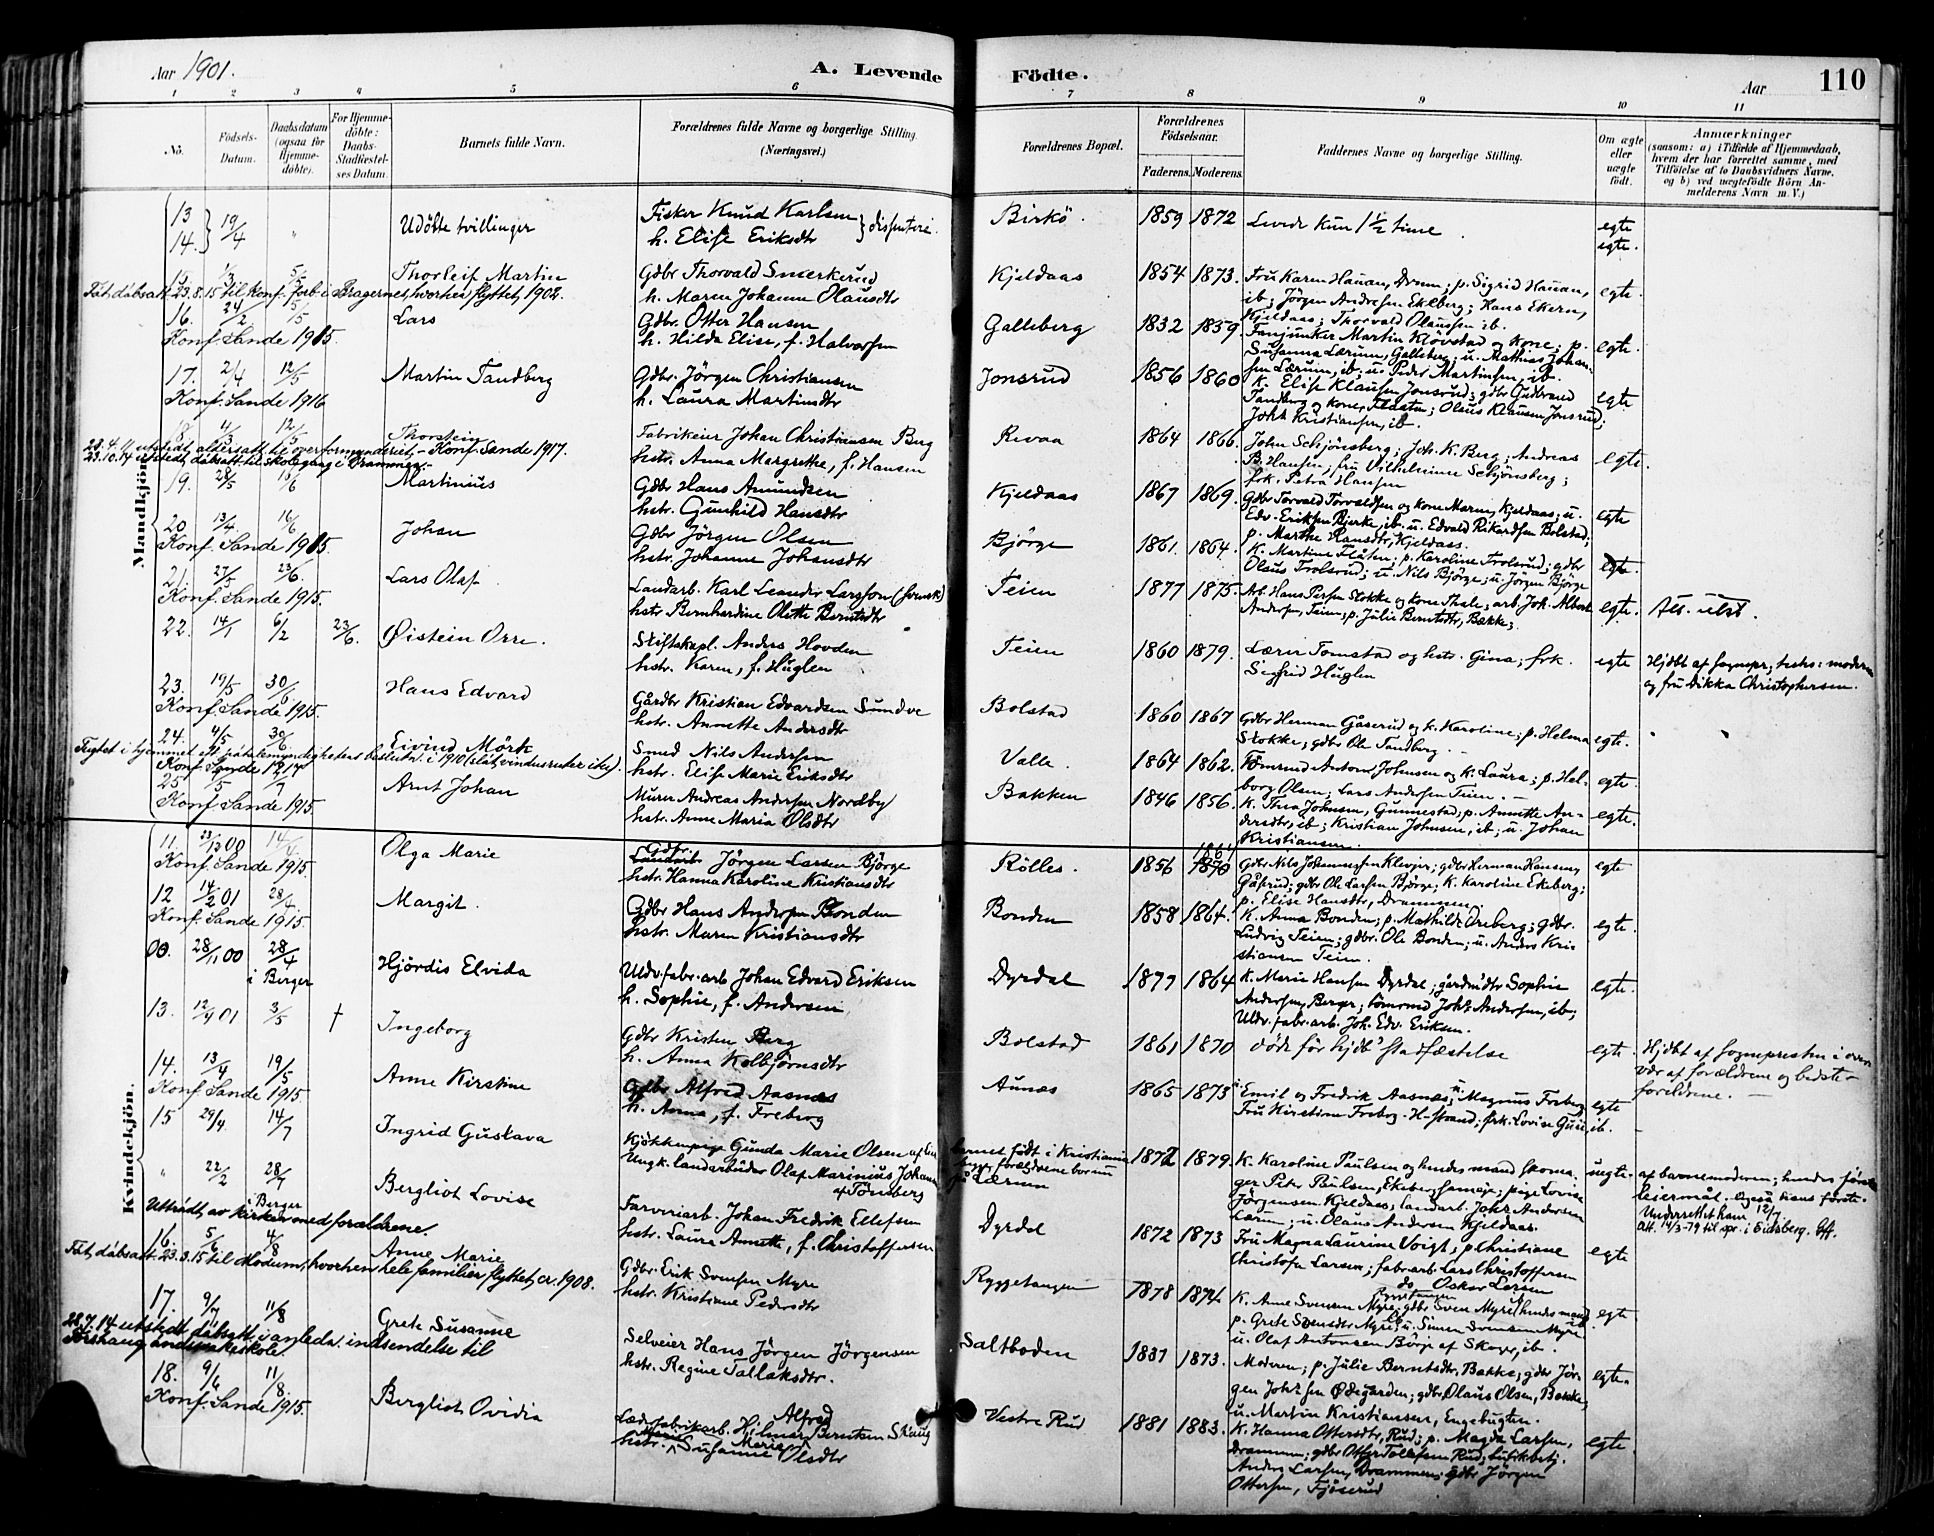 Aar 1901.
A. Levende
Födte.
Aar
110
1 2 3 4 5 6 7 8 9 10 11
No.
Födsels-
Datum.
Daabsdatum
(ogsaa for
Hjemme-
döbte).
For Hjemme-
döbte:
Daabs-
Stadfæstel-
ses Datum.
Barnets fulde Navn.
Forældrenes fulde Navne og borgerlige Stilling.
(Næringsvei.)
Forældrenes Bopæl.
Forældrenes
Födselsaar.
Faderens. Moderens.
Faddernes Navne og borgerlige Stilling.
Om ægte
eller
uægte
födt.
Anmærkninger
(saasom: a) i Tilfælde af Hjemmedaab,
hvem der har forrettet samme, med
Tilföielse af to Daabsvidners Navne,
og b) ved uægtefödte Börn An-
melderens Navn m. V.)
Mandkjön.
13
14. 19/4 " Udöbte tvillinger
Fisker Knud Karlsen
h. Elise Eriksdtr } dissentere.
Birkö. 1859 1872 Levede kun 1 1/2 time
egte
egte.
15. 1/3 5/5 Thorleif Martin
Gdbr Thorvald Smerkerud
h. Maren Johanne Olausdtr
Kjeldaas 1854 1873.
Fru Karen Hanan, Drmn; p. Sigrid Hanan,
ib; Jörgen Andresen Ekeberg; Hans Ekern,
Kjeldaas; Thorvald Olaussen ib.
egte.
Fåt dåbsatt. 23.8.15 til konf. forb. i Bragernes, hvorhen flyttet 1902.
16. 24/2 5/5 Lars
Gdbr. Otter Hansen
h. Hilda Elise, f. Halvorsen
Galleberg 1832 1859.
Fanjunker Martin Klövstad og kone; p.
Susanna Lærum, Galleberg; u. Mathias Johan-
sen Lærum, ib; u. Peder Martinsen, ib.
egte.
Konf. Sande 1915.
17. 2/4 12/5 Martin Tandberg
Gdbr. Jörgen Christiansen
h. Laura Martinsdtr
Jonsrud 1856 1860
k. Elise Klausen Jonsrud; gdbr Gudbrand
Tandberg og kone, Flaaten; Olaus Klausen Jonsrud;
Joh. Kristiansen, ib.
egte
Konf. Sande 1916
18. 4/5 12/5 Thorstein
Fabrikeier Johan Christiansen Berg
hstr. Anna Margrethe, f. Hansen
Revaa 1864 1866.
John Schjönsberg; Joh. K. Berg; Andreas
B. Hansen; fru Vilhelmine Schjönsberg;
frk. Petra Hansen
egte.
utstedt aldersatt. til overformynderiet. - Konf. Sande 1917.
23.10.14 utstedt dåbsatt. til skolegang i Drammen.
19. 28/5 16/6 Martinius
Gdbr Hans Amundsen
hstr. Gunhild Hansdtr
Kjeldaas 1867 1869.
Gdbr Torvald Torvaldsen og kone Maren, Kjeldaas; u.
Edv. Eriksen Bjerke, ib. u. Edvald Rikardsen Bolstad;
p. Marthe Hansdtr, Kjeldaas.
egte
20 13/4. 16/6 Johan
Gdbr Jörgen Olsen
hstr. Johanne Johansdtr
Björge 1861. 1864.
K. Martine Flåten; p. Karoline Trolsrud; gdbr
Olaus Trolsrud; u. Nils Björge; u. Jörgen Björge
egte.
Konf. Sande 1915.
21. 27/5 23/6. Lars Olaf.
Landarb. Karl Leander Larsson (svensk)
hstr Bernhardine Olette Berntsdtr
Teien 1877 1875.
Arb. Hans Persen Stokke og kone Thale; arb Joh. Albert
Andersen, Teien; p. Julie Berntsdtr, Bakke;
egte. Att. utst.
Konf. Sande 1915.
22. 14/1 6/2 23/6. Øistein Orre.
Stiftskapl. Anders Hovden
hstr. Karen, f. Huglen
Teien 1860 1879.
Lærer Tomstad og hstr. Gina; frk.
Sigfrid Huglen
egte
Hjdbt af sognepr; testes: moderen
og fru Dikka Christophersen.
23. 19/5 30/6 Hans Edvard
Gårdbr Kristian Edvardsen Sundve
hstr. Annette Andersdtr
Bolstad 1860 1867
gdbr Herman Gåserud og k. Karoline; p. Helma
Stokke; gdbr Ole Tandberg.
egte.
Konf. Sande 1915.
24. 4/5 30/6. Eivind Mörk
Smed Nils Andersen
hstr. Elise Marie Eriksdtr
Valle. 1864 1862.
Tömrmd Anton Johnsen og k. Laura; p. Hal-
borg Olsen; Lars Andersen Teien.
egte
Konf. Sande 1914
25 1/5 2/7 Arnt Johan
Murer Andreas Andersen Nordby
hstr. Anne Maria Olsdtr
Bakken 1846 1856.
K. Thea Johnsen, Gunnestad; p. Annette An-
dersdtr, ib; Kristian Johnsen, ib; u. Johan
Kristiansen.
egte.
Konf. Sande 1915.
Kvindekjön.
11. 23/12 00 14/4 Olga Marie
Gdbr.
Landarb. Jörgen Larsen Björge
hstr. Hanna Karoline Kristiansdtr
Rölles. 1856 1870
gdbr Nils Johannessen Klevjer; gdbr Herman Hansen,
Gåsrud; gdbr Ole Larsen Björge; K. Karoline Ekeberg;
p. Elise Hansdtr, Drammen.
egte
Konf. Sande 1915.
12 14/2 01 28/4 Margit.
Gdbr Hans Andersen Bonden
hstr. Maren Kristiansdtr
Bonden 1858 1864.
K. Anna Bonden; p. Mathilde Areberg; gdbr.
Ludvig Teien; gdbr. Ole Bonden; u. Anders Kris-
tiansen Teien.
egte.
Konf. Sande 1915.
00. 28/11 00 28/4
i Berger
Hjördis Elvida
Uldv.fabr.arb Johan Edvard Eriksen
h. Sophie, f. Andersen
Dyrdal 1877 1864
K. Marie Hansen Dyrdal; gårdmdtr Sophie
Andersen, Berger; tömrmd Joh. Andersen, ib;
Uldv.fabr.arb. Joh. Edv. Eriksen.
egte.
13. 12/4 01 3/5 † Ingeborg
Gdbr Kristen Berg
h. Anna Kolbjörnsdtr
Bolstad 1861 1870
döde för hjdb's stadfæstelse
egte
Hjdbt af sognepresten i over-
vær af forældrene og bedste-
forældrene.
14. 13/4 19/5 Anne Kirstine
Gdbr Alfred Aasnes
h. Anna, f. Freberg
Aunæs 1865 1873
Emil og Fredrik Aasnæs; u. Magnus Freberg
Fru Kirstine Freberg. H-strand; frk. Lovise Guse, ib.
egte
Konf. Sande 1915
15 29/4. 14/7 Ingrid Gustava
Kjökkenpige Gunda Marie Olsen af
Ungk. landarbeider Olaf Marinius Johans
af Tönsberg
barnet födt i Kristiania
forældrene bor nu
på Lærum
1872 1879.
K. Karoline Paulsen og hendes mand skoma-
ger Peter Paulsen, Ekeberg; pige Lovise
Jörgensen Kjeldaas; landarb. Joh. Andersen
Lærum; u. Olaus Andersen Kjeldaas.
uegte.
af barnemoderen; hendes første
leiermål. Også hans förste.
Underrettet ham 12/7.
Att. 14/3-79 til spr. i Eidsberg.
" 22/2 28/7
i Berger
Bergliot Lovise
Farveriarb. Johan Fredrik Ellefsen
hstr. Laura Annette, f. Christoffersen
Dyrdal 1872 1873
Fru Magna Laurine Voigt; p Christiane
Christofa Larsen; fabr.arb. Lars Christoffersen
do Oskar Larsen
egte
Uttrådt av kirken med forældrene.
16. 5/6 4/8 Anne Marie
Gdbr. Erik Svensen Myre
hstr. Kristiane Pedersdtr
Ryggetangen 1878 1874.
K. Anne Svensen Myre; gdbr Sven Myre (hendes mand)
p. Grete Svensdtr Myre; u. Simen Svensen Myre
u. Olaf Antonsen Börge af Skoger, ib.
egte
Fåt dåbsatt. 23.3.15 til Modum, hvorhen hele familien flyttet, cr. 1908.
17. 9/7 11/8 Grete Susanne
Selveier Hans Jörgen Jörgensen
hstr. Regine Tallaksdtr.
Saltboden 1831 1873.
Moderen; p. Julie Berntsdtr, Bakke; gdbr Jör-
gen Joh.sen Ødegården; gdbr Olaus Olsen, Bakke,
u. Martin Kristiansen, Engebugten.
egte.
28.7.14 utstedt dåbsatt. i anledn. indsendelse til
18. 9/6 11/8. Bergliot Ovidia
Alfred
Læderfabrikarb. Hilmar Berntsen Skaug
hstr. Susanne Marie Olsdtr
Vestre Rud 1881 1883.
K. Hanna Ottersdtr, Rud; p. Magda Larsen,
Drammen; gdbr Otter Tollefsen Rud; butikbetj.
Anders Larsen, Drammen; gdbr Jörgen
Ottersen, Fjöserud
egte.
Konf. Sande 1915.